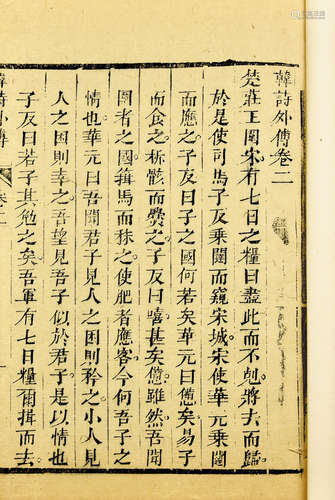 韓詩外傳卷二
楚莊王圍宋有七日之糧曰盡此而不剋將去而歸
於是使司馬子反乘闉而窺宋城宋使華元乘闉
而應之子反曰子之國何若矣華元曰憊矣易子
而食之析骸而爨之子反曰嘻甚矣憊雖然吾聞
圍者之國馬而秣之使肥者應客今何吾子之
情也華元曰吾聞君子見人之困則矜之小人見
人之困則幸之吾望見吾子似於君子是以情也
子反曰若子其勉之矣吾軍有七日糧爾揖而去
韓詩外傳 卷二